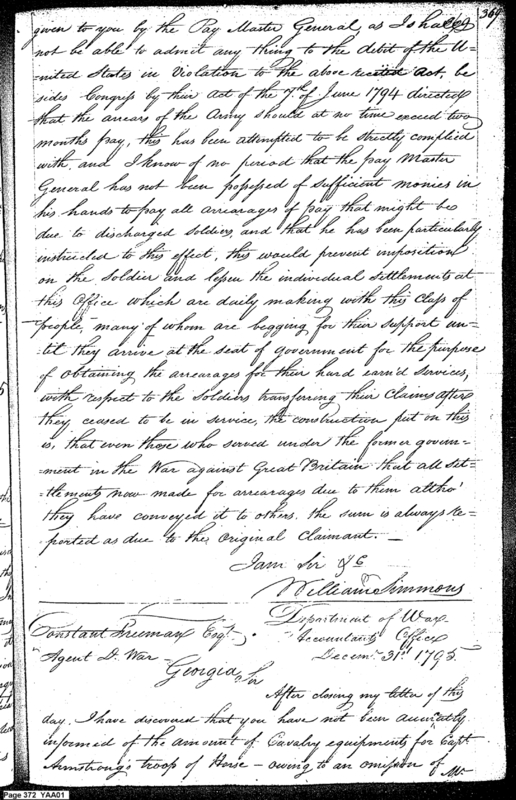 369
given to you by the Pay Master General, as I shall
not be able to admit any thing to the debit of the U-
nited States in Violation to the above recited Act, be
sides Congress by their Act of the 7th of June 1794 directed
that the arrears of the Army should at no time exceed two
months pay, this has been attempted to be strictly complied
with, and I know of no period that the pay Master
General has not been possessed of sufficient monies in
his hands to pay all arrearages of pay that might be
due to discharged soldiers, and that he has been particularly
instructed to this effect, this would prevent imposition
on the Soldier and lessen the individual settlements at
this Office which are daily making with this Class of
people, many of whom are begging for their support un-
-til they arrive at the seat of government for the purpose
of obtaining the arrearages for their hard earn'd services,
with respect to the Soldiers transferring their Claims after
they ceased to be in service, the construction put on this
is, that even those who served under the former govern-
-ment in the War against Great Britain that all set-
-tlements now made for arrearages due to them altho'
they have conveyed it to others, the sum is always re-
-ported as due to the Original Claimant. —
I am Sir &C
William Simmons
Constant Freeman Esqr.
Agent D. War
Georgia
Department of War
Accountants Office
Decemr. 31st. 1795.
Sir
After closing my letter of this
day, I have discovered that you have not been accurately
informed of the amount of Cavalry equipments for Capt.
Armstrong's troop of Horse — owing to an omission of Mr.
Page 372 YAA01